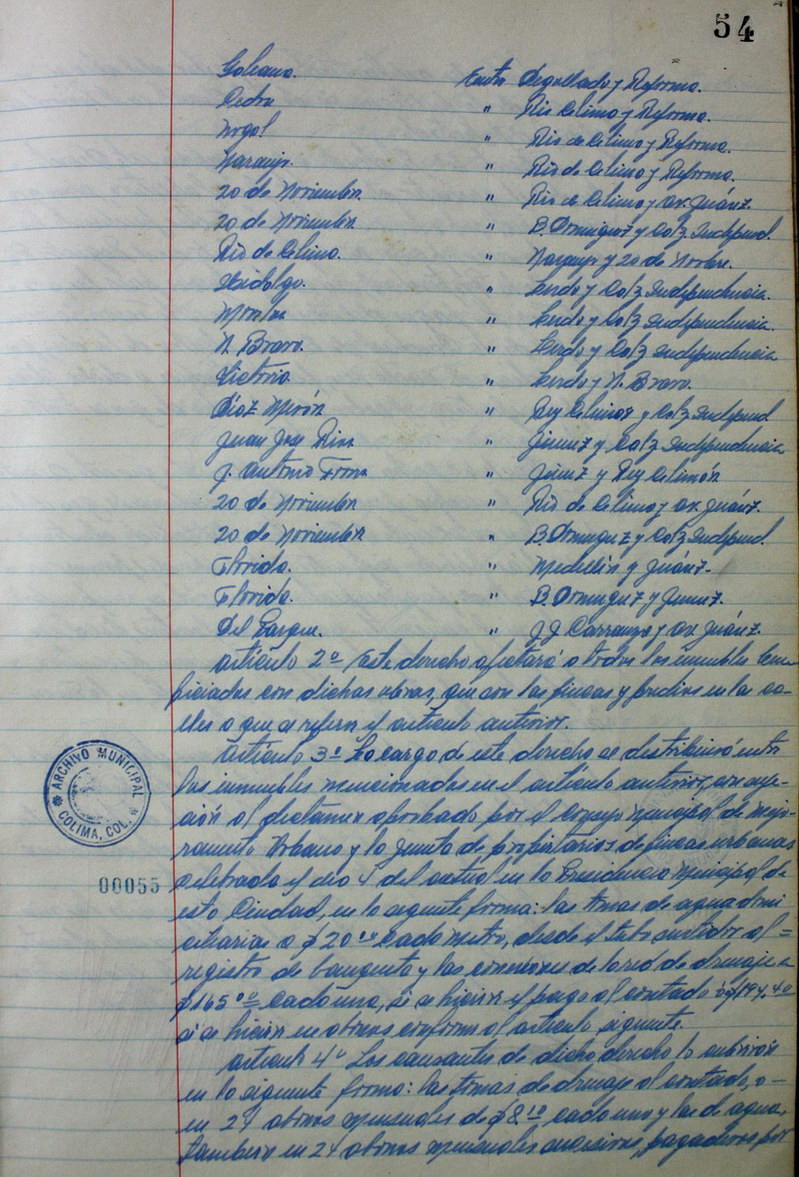 54
Galeana. Entre Degollado y Reforma.
Cedro " Rio Colima y Reforma.
Nogal " Rio de Colima y Reforma.
Naranjo. " Rio de Colima y Reforma.
20 de Noviembre " Rio de Colima y Av. Juárez.
20 de Noviembre. " B. Dominguez y Calz. Independ.
Rio de Colima. " Naranjo y 20 de Novbre.
Hidalgo. " Lerdo y Calz Independencia.
Morelos " Lerdo y Calz Independencia.
N. Bravo. " Lerdo y Calz Independencia
Victoria " Lerdo y N. Bravo.
Díaz Mirón " Rey Coliman y Calz Independ
Juan José Rios " Jimenez y Calz Independencia
J. Antonio Torres " Jimenez y Rey Colimán
20 de Noviembre " Rio de Colima y Av. Juárez.
20 de Noviembre " B. Dominguez y Calz Independ.
Florida. " Medellin y Juárez.
Florida. " B. Dominguez y Jimenez.
Del Parque. " J. J. Carranza y Av. Juárez.
Artículo 2º Este derecho afectará a todos los inmuebles bene
ficiados con dichas obras, que son las fincas y predios en las ca-
lles a que se refiere el artículo anterior.
Artículo 3º La carga de este derecho se distribuirá entre
los inmuebles mencionados en el artículo anterior, con suje-
ción al dictamen aprobado por el Consejo Municipal de Mejo-
ramiento Urbano y la Junta de propietarios de fincas urbanas
celebrada el dia 4 del actual en la Presidencia Municipal de
esta Ciudad, en la siguiente forma: las tomas de agua domi
ciliarias a $20.00 cada metro, desde el tubo surtidor al =
registro de banqueta y las conexiones de la red de drenaje a
$165.00 cada una, si se hiciere el pago al contado ó $194.40
si se hiciere en abonos conforme al artículo siguiente.
Artículo 4º Los causantes de dicho derecho lo cubrirán
en la siguiente forma: las tomas de drenaje al contado, o -
en 24 abonos mensuales de $8.10 cada uno y las de agua,
tambien en 24 abonos mensuales sucesivos, pagaderos por
ARCHIVO MUNICIPAL
COLIMA, COL.
00055